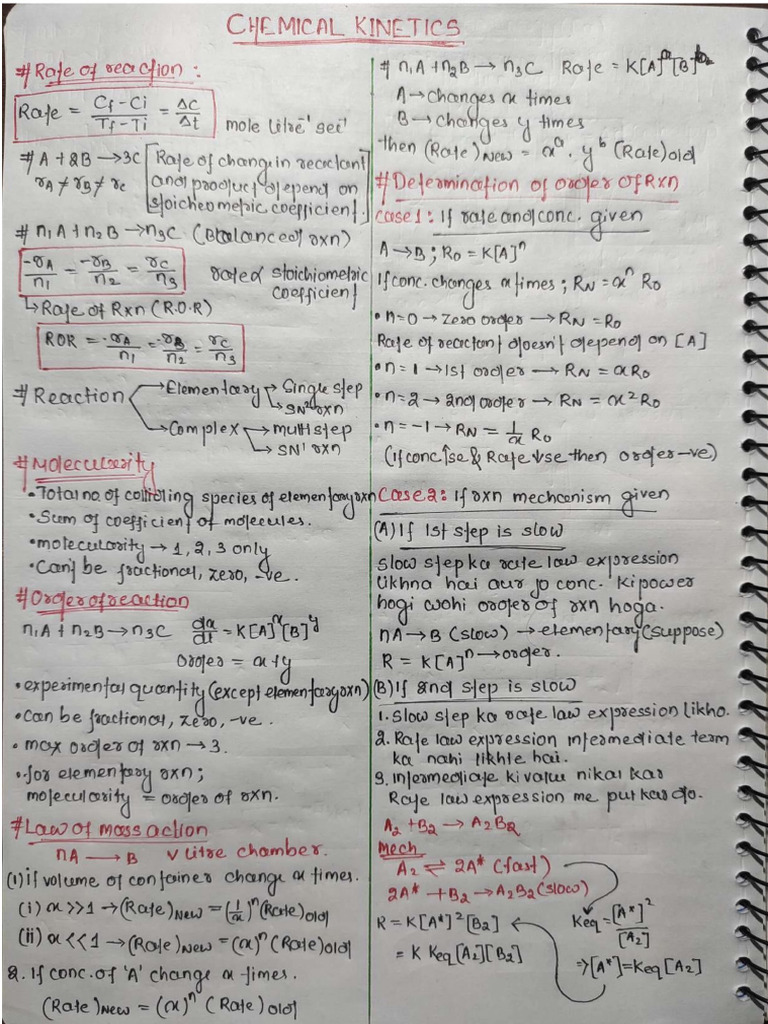 CHEMICAL KINETICS
# Rate of reaction :
Rate = (Cf - Ci)/(Tf - Ti) = ΔC/Δt mole litre⁻¹ sec⁻¹
# A + 2B → 3C [Rate of change in reactant
rA ≠ rB ≠ rC and product depend on
stoicheometric coefficient.]
# n1A + n2B → n3C (Balanced rxn)
-rA/n1 = -rB/n2 = rC/n3 rate α stoichiometric
coefficient
↳ Rate of Rxn (R.O.R)
ROR = -rA/n1 = -rB/n2 = rC/n3
# Reaction → Elementary → Single step
→ SN² rxn
→ Complex → multi step
→ SN¹ rxn
# Molecularity
• Total no. of colliding species of elementary rxn
• Sum of coefficient of molecules.
• molecularity → 1, 2, 3 only
• Can't be fractional, zero, -ve.
# Order of reaction
n1A + n2B → n3C dx/dt = K[A]^x[B]^y
Order = x+y
• experimental quantity (except elementary rxn)
• Can be fractional, zero, -ve.
• max order of rxn → 3.
• for elementary rxn;
molecularity = order of rxn.
# Law of mass action
nA → B V litre chamber.
(1) if volume of container change x times.
(i) x>>1 → (Rate)New = (1/x)^n (Rate)old
(ii) x<<1 → (Rate)New = (x)^n (Rate)old
2. If conc. of 'A' change x times.
(Rate)New = (x)^n (Rate)old
# n1A + n2B → n3C Rate = K[A]^a[B]^b
A → changes x times
B → changes y times
then (Rate)New = x^a . y^b (Rate)old
# Determination of order of Rxn
Case 1 : If rate and conc. given
A → B ; R0 = K[A]^n
If conc. changes x times ; RN = x^n R0
• n=0 → Zero order → RN = R0
Rate of reactant doesn't depend on [A]
• n=1 → 1st order → RN = xR0
• n=2 → 2nd order → RN = x²R0
• n=-1 → RN = 1/x R0
(If conc ↑se & Rate ↓se then order -ve)
Case 2 : If rxn mechanism given
(A) If 1st step is slow
slow step ka rate law expression
likhna hai aur jo conc. ki power
hogi wohi order of rxn hoga.
nA → B (slow) → elementary (suppose)
R = K[A]^n → order.
(B) If 2nd step is slow
1. Slow step ka rate law expression likho.
2. Rate law expression intermediate term
ka nahi likhte hai.
3. Intermediate ki value nikal kar
Rate law expression me put kar do.
A2 + B2 → A2B2
Mech
A2 ⇌ 2A* (fast)
2A* + B2 → A2B2 (slow)
R = K[A*]²[B2] Keq = [A*]²/[A2]
= K Keq [A2][B2] ⇒ [A*] = Keq [A2]